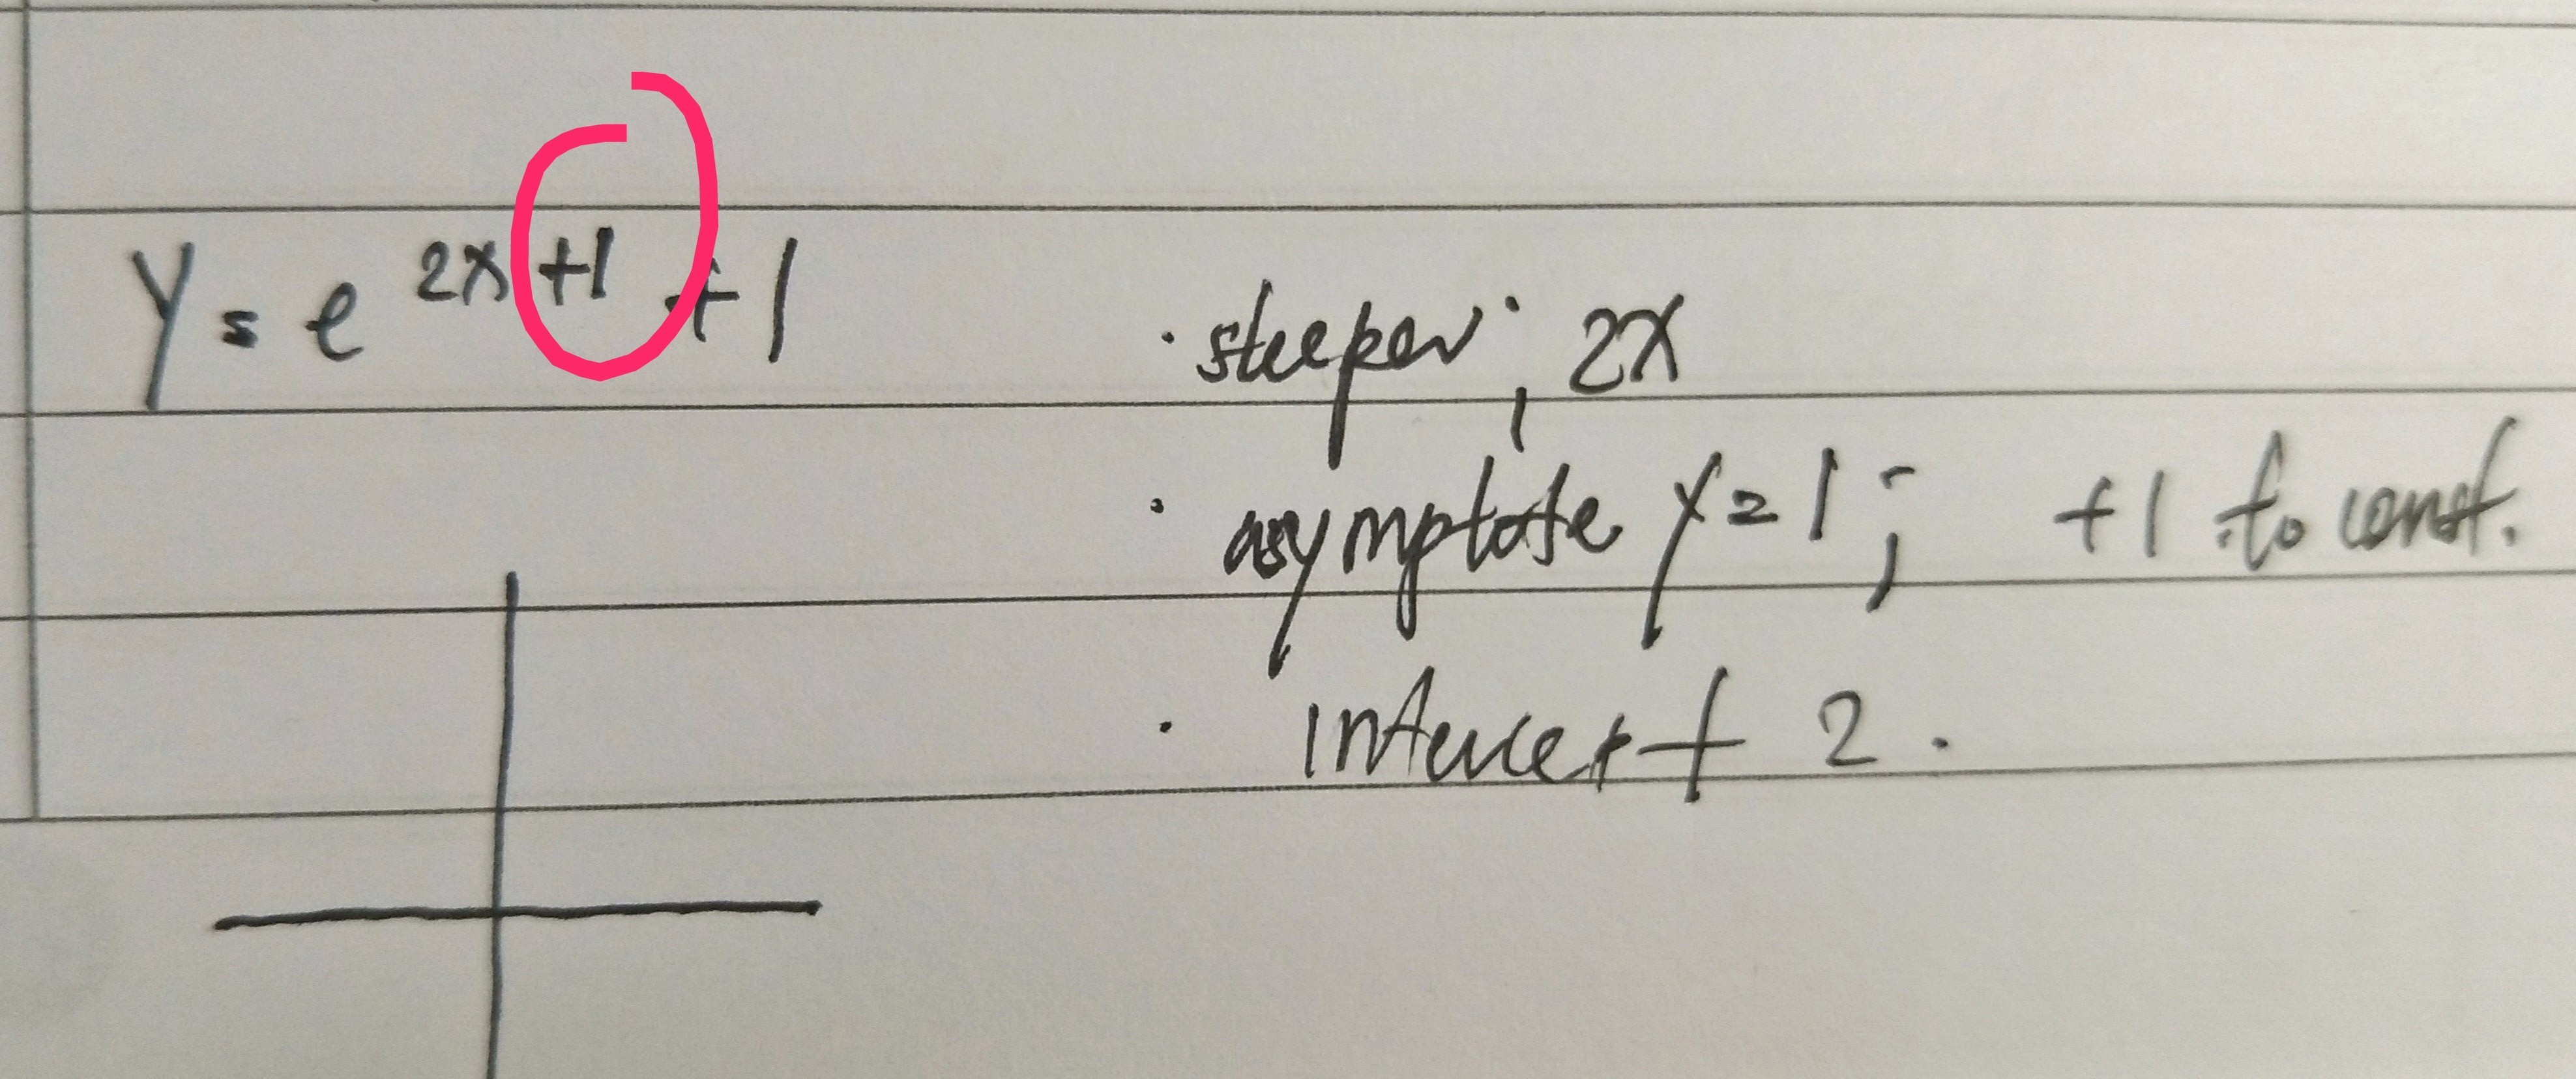 y = e^{2x+1} + 1
· steeper ; 2x
· asymptote y=1 ; +1 to const.
· intercept 2.